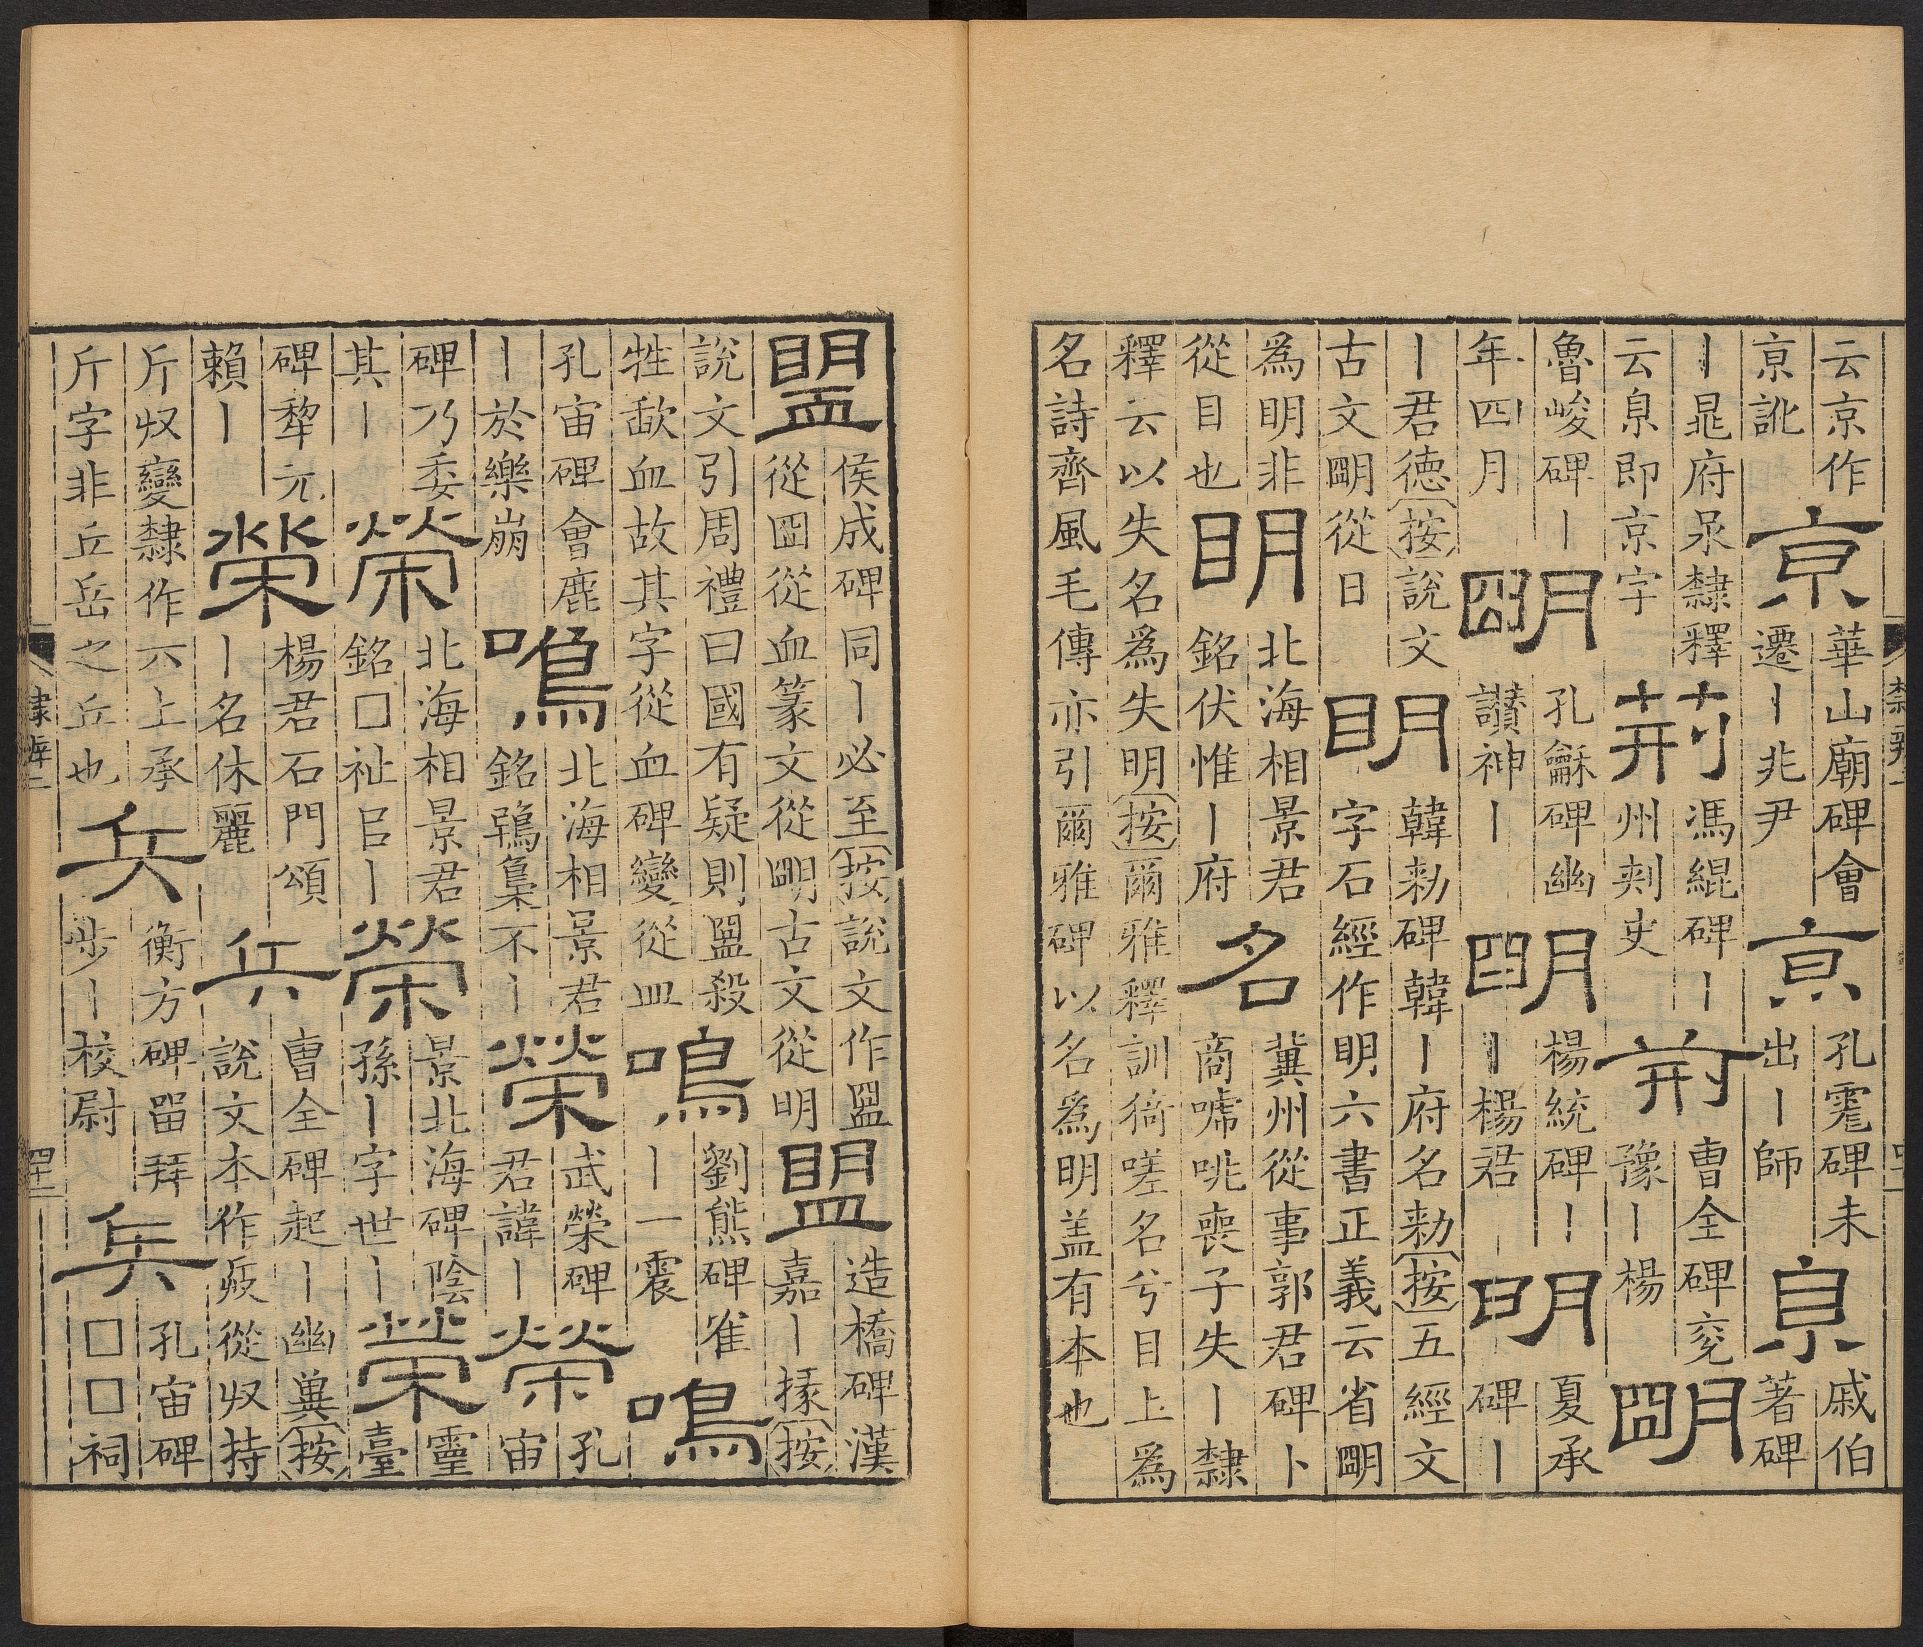 云京作亰訛亰華山廟碑會遷丨兆尹亰孔霮碑未出丨師㒷戚伯著碑
丨晁府泉隸釋云㒷即京字荊馮緄碑丨州刺史荊曹全碑兖豫丨楊朙
魯峻碑丨年四月朙孔龢碑幽讃神丨明楊統碑丨丨楊君明夏承碑丨
丨君德按說文古文朙從日眀韓勑碑韓丨府名勑按五經文字石經作眀六書正義云省朙
為眀非從目也眀北海相景君銘伏惟丨府名冀州從事郭君碑卜商嘑咷喪子失丨隸
釋云以失名為失明按爾雅釋訓猗嗟名兮目上為名詩齊風毛傳亦引爾雅碑以名為明盖有本也
盟侯成碑同丨必至按說文作盟從囧從血篆文從朙古文從明盟造橋碑漢嘉丨掾按
說文引周禮曰國有疑則盟殺牲歃血故其字從血碑變從皿鳴劉熊碑雀丨一震鳴
孔宙碑會鹿丨於樂崩鳴北海相景君銘鴞梟不丨榮武榮碑君諱丨榮孔宙
碑乃委其丨榮北海相景君銘□祉臣丨榮景北海碑陰孫丨字世丨榮靈臺
碑犂元賴丨榮楊君石門頌丨名休麗兵曹全碑起丨幽兾按說文本作𠔗從𠬞持
斤𠬞變隸作六上承斤字非丘岳之丘也兵衡方碑畱拜步丨校尉兵孔宙碑□□祠
隸辨二